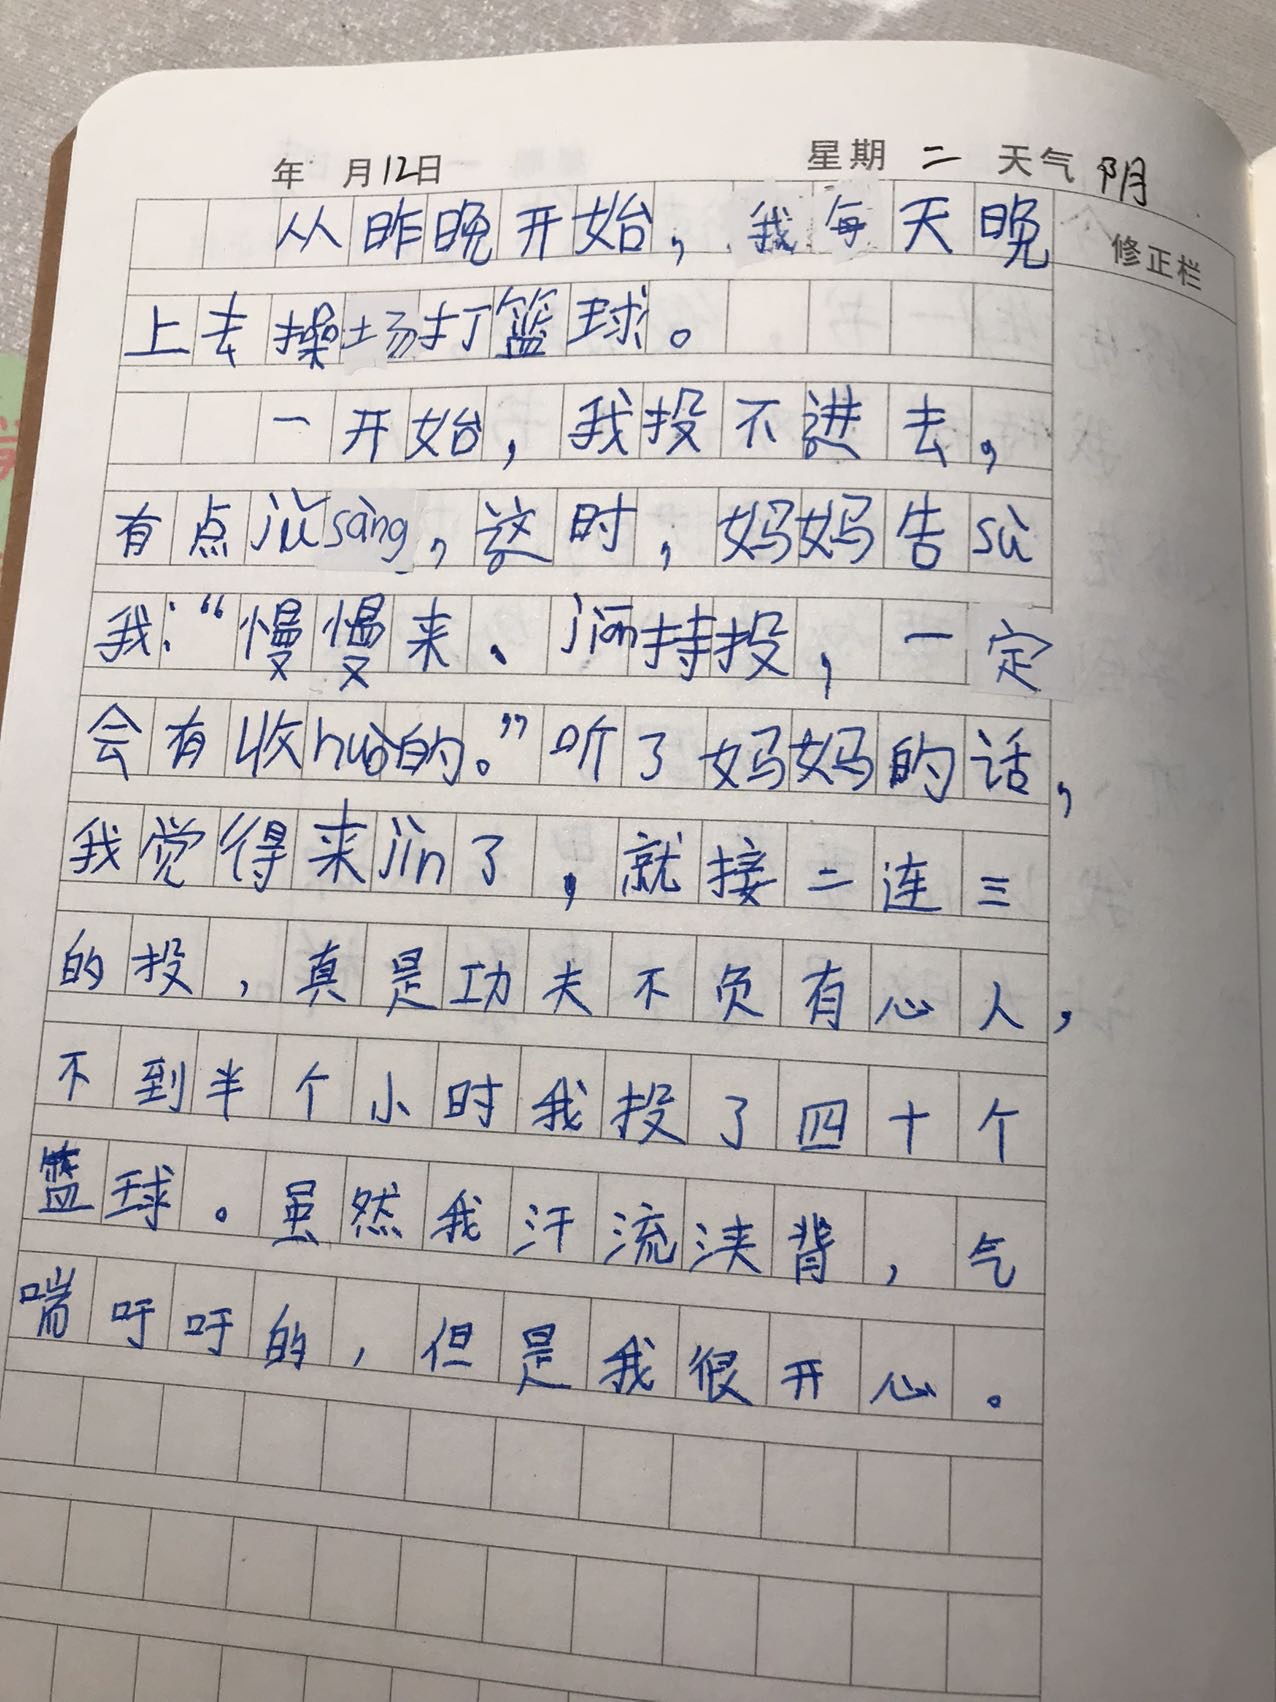 年 月12日 星期 二 天气 阴
修正栏
从昨晚开始，我每天晚
上去操场打篮球。
一开始，我投不进去，
有点jǔsàng，这时，妈妈告sù
我：“慢慢来、jiān持投，一定
会有收huò的。”听了妈妈的话，
我觉得来jìn了，就接二连三
的投，真是功夫不负有心人，
不到半个小时我投了四十个
篮球。虽然我汗流浃背，气
喘吁吁的，但是我很开心。